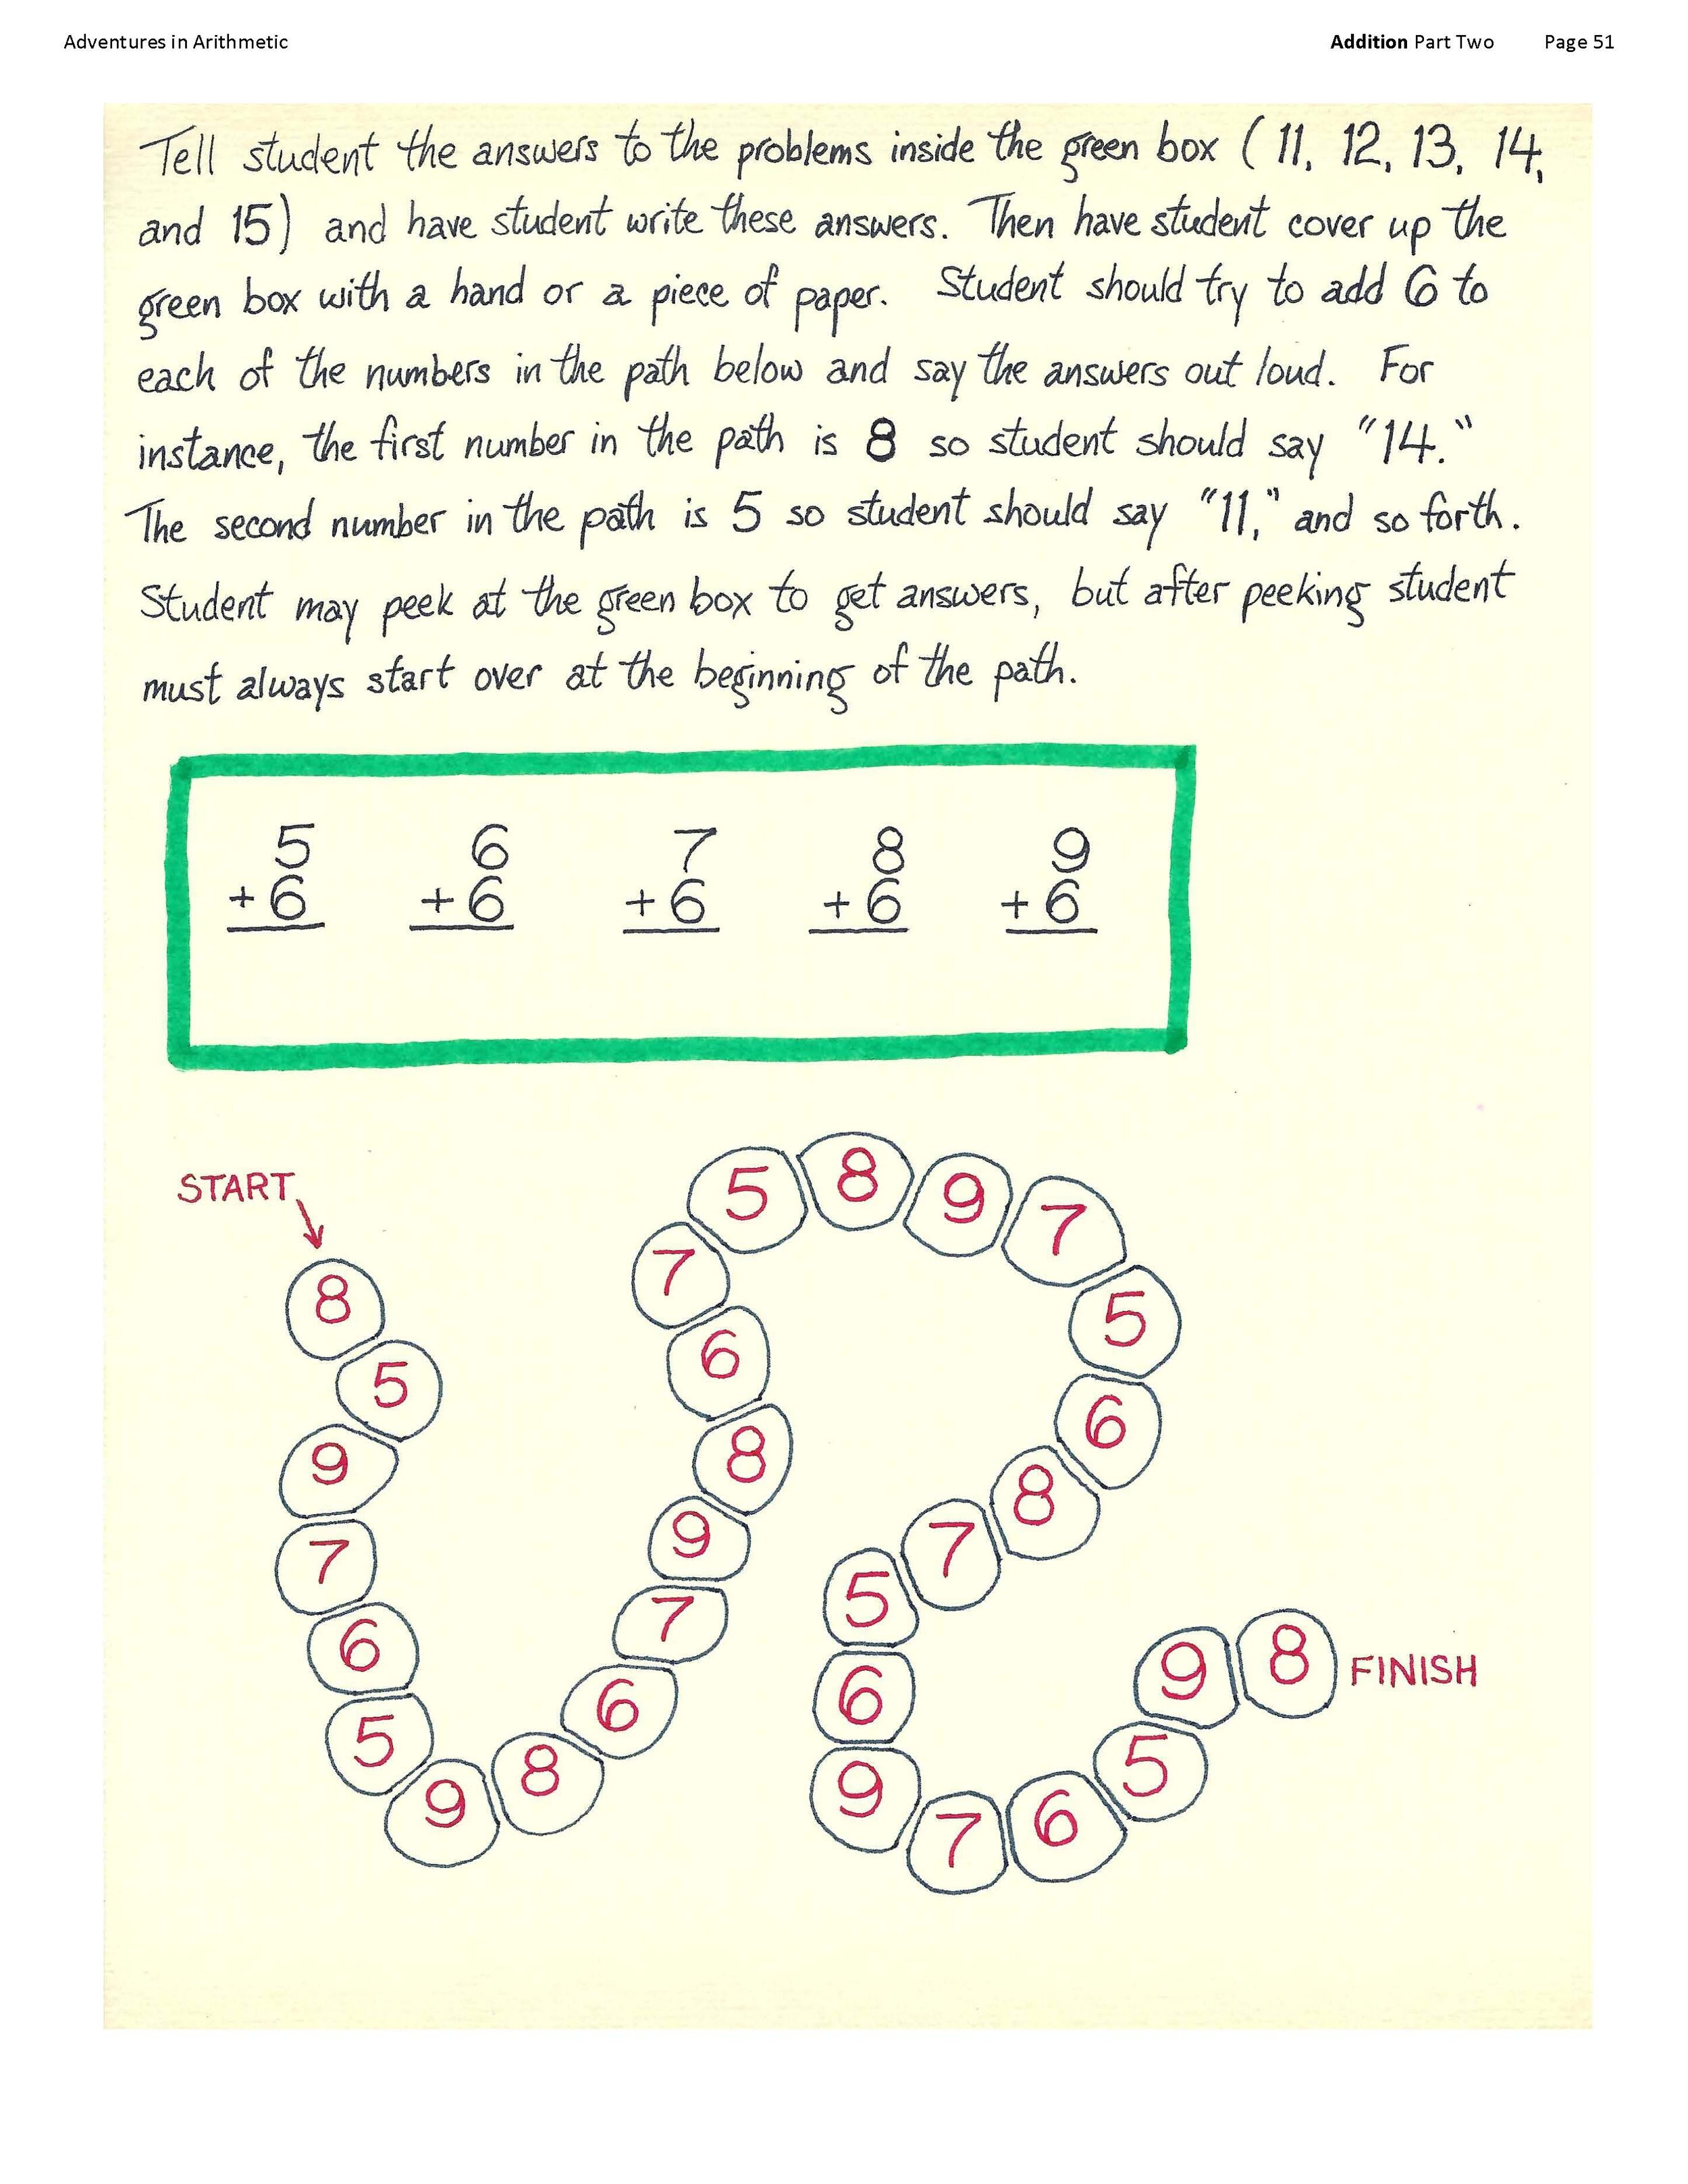 Adventures in Arithmetic Addition Part Two Page 51
Tell student the answers to the problems inside the green box (11, 12, 13, 14,
and 15) and have student write these answers. Then have student cover up the
green box with a hand or a piece of paper. Student should try to add 6 to
each of the numbers in the path below and say the answers out loud. For
instance, the first number in the path is 8 so student should say "14."
The second number in the path is 5 so student should say "11," and so forth.
Student may peek at the green box to get answers, but after peeking student
must always start over at the beginning of the path.
5 6 7 8 9
+6 +6 +6 +6 +6
START
8
5
9
7
6
5
9
8
6
7
9
8
6
7
5
8
9
7
5
6
8
7
5
6
9
7
6
5
9
8
FINISH